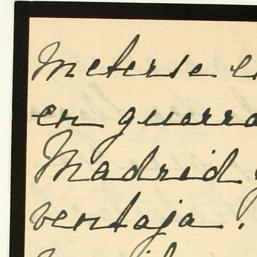 Meterse e
en guerra
Madrid y
ventaja.